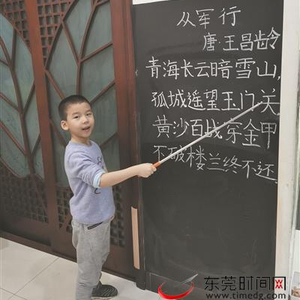 从军行
唐:王昌龄
青海长云暗雪山,
孤城遥望玉门关
黄沙百战穿金甲
不破楼兰终不还.
东莞时间网
www.timedg.com